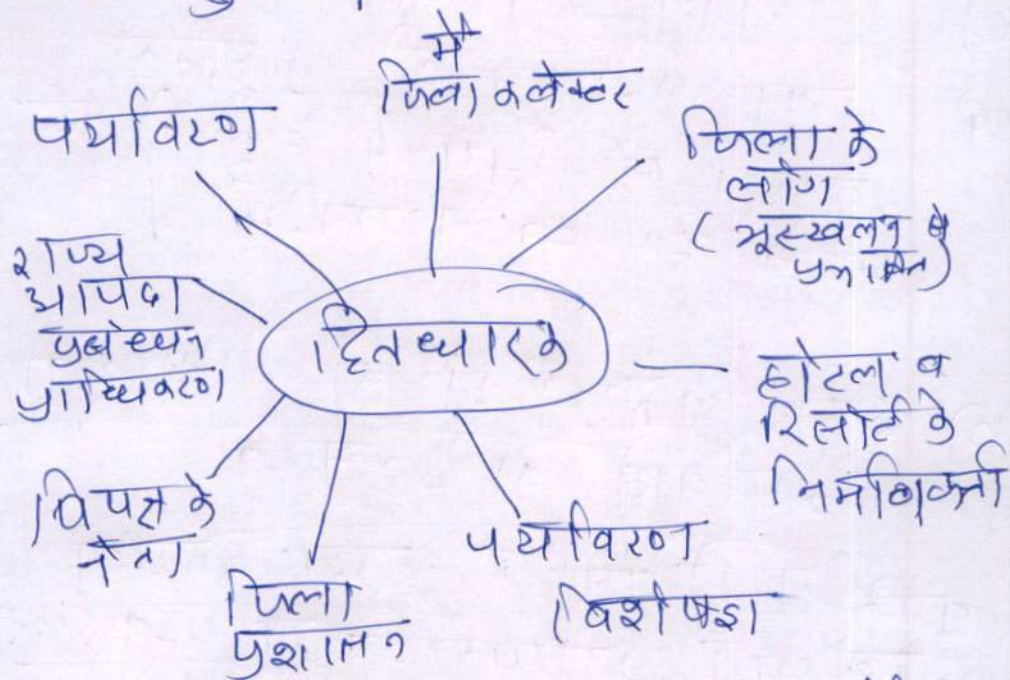 मैं
जिला कलेक्टर
पर्यावरण
जिला के
लोग
(भूस्खलन से
प्रभावित)
राज्य
आपदा
प्रबंधन
प्राधिकरण
हितधारक
होटल व
रिसोर्ट के
निर्माणकर्ता
विपक्ष के
नेता
जिला
प्रशासन
पर्यावरण
विशेषज्ञ